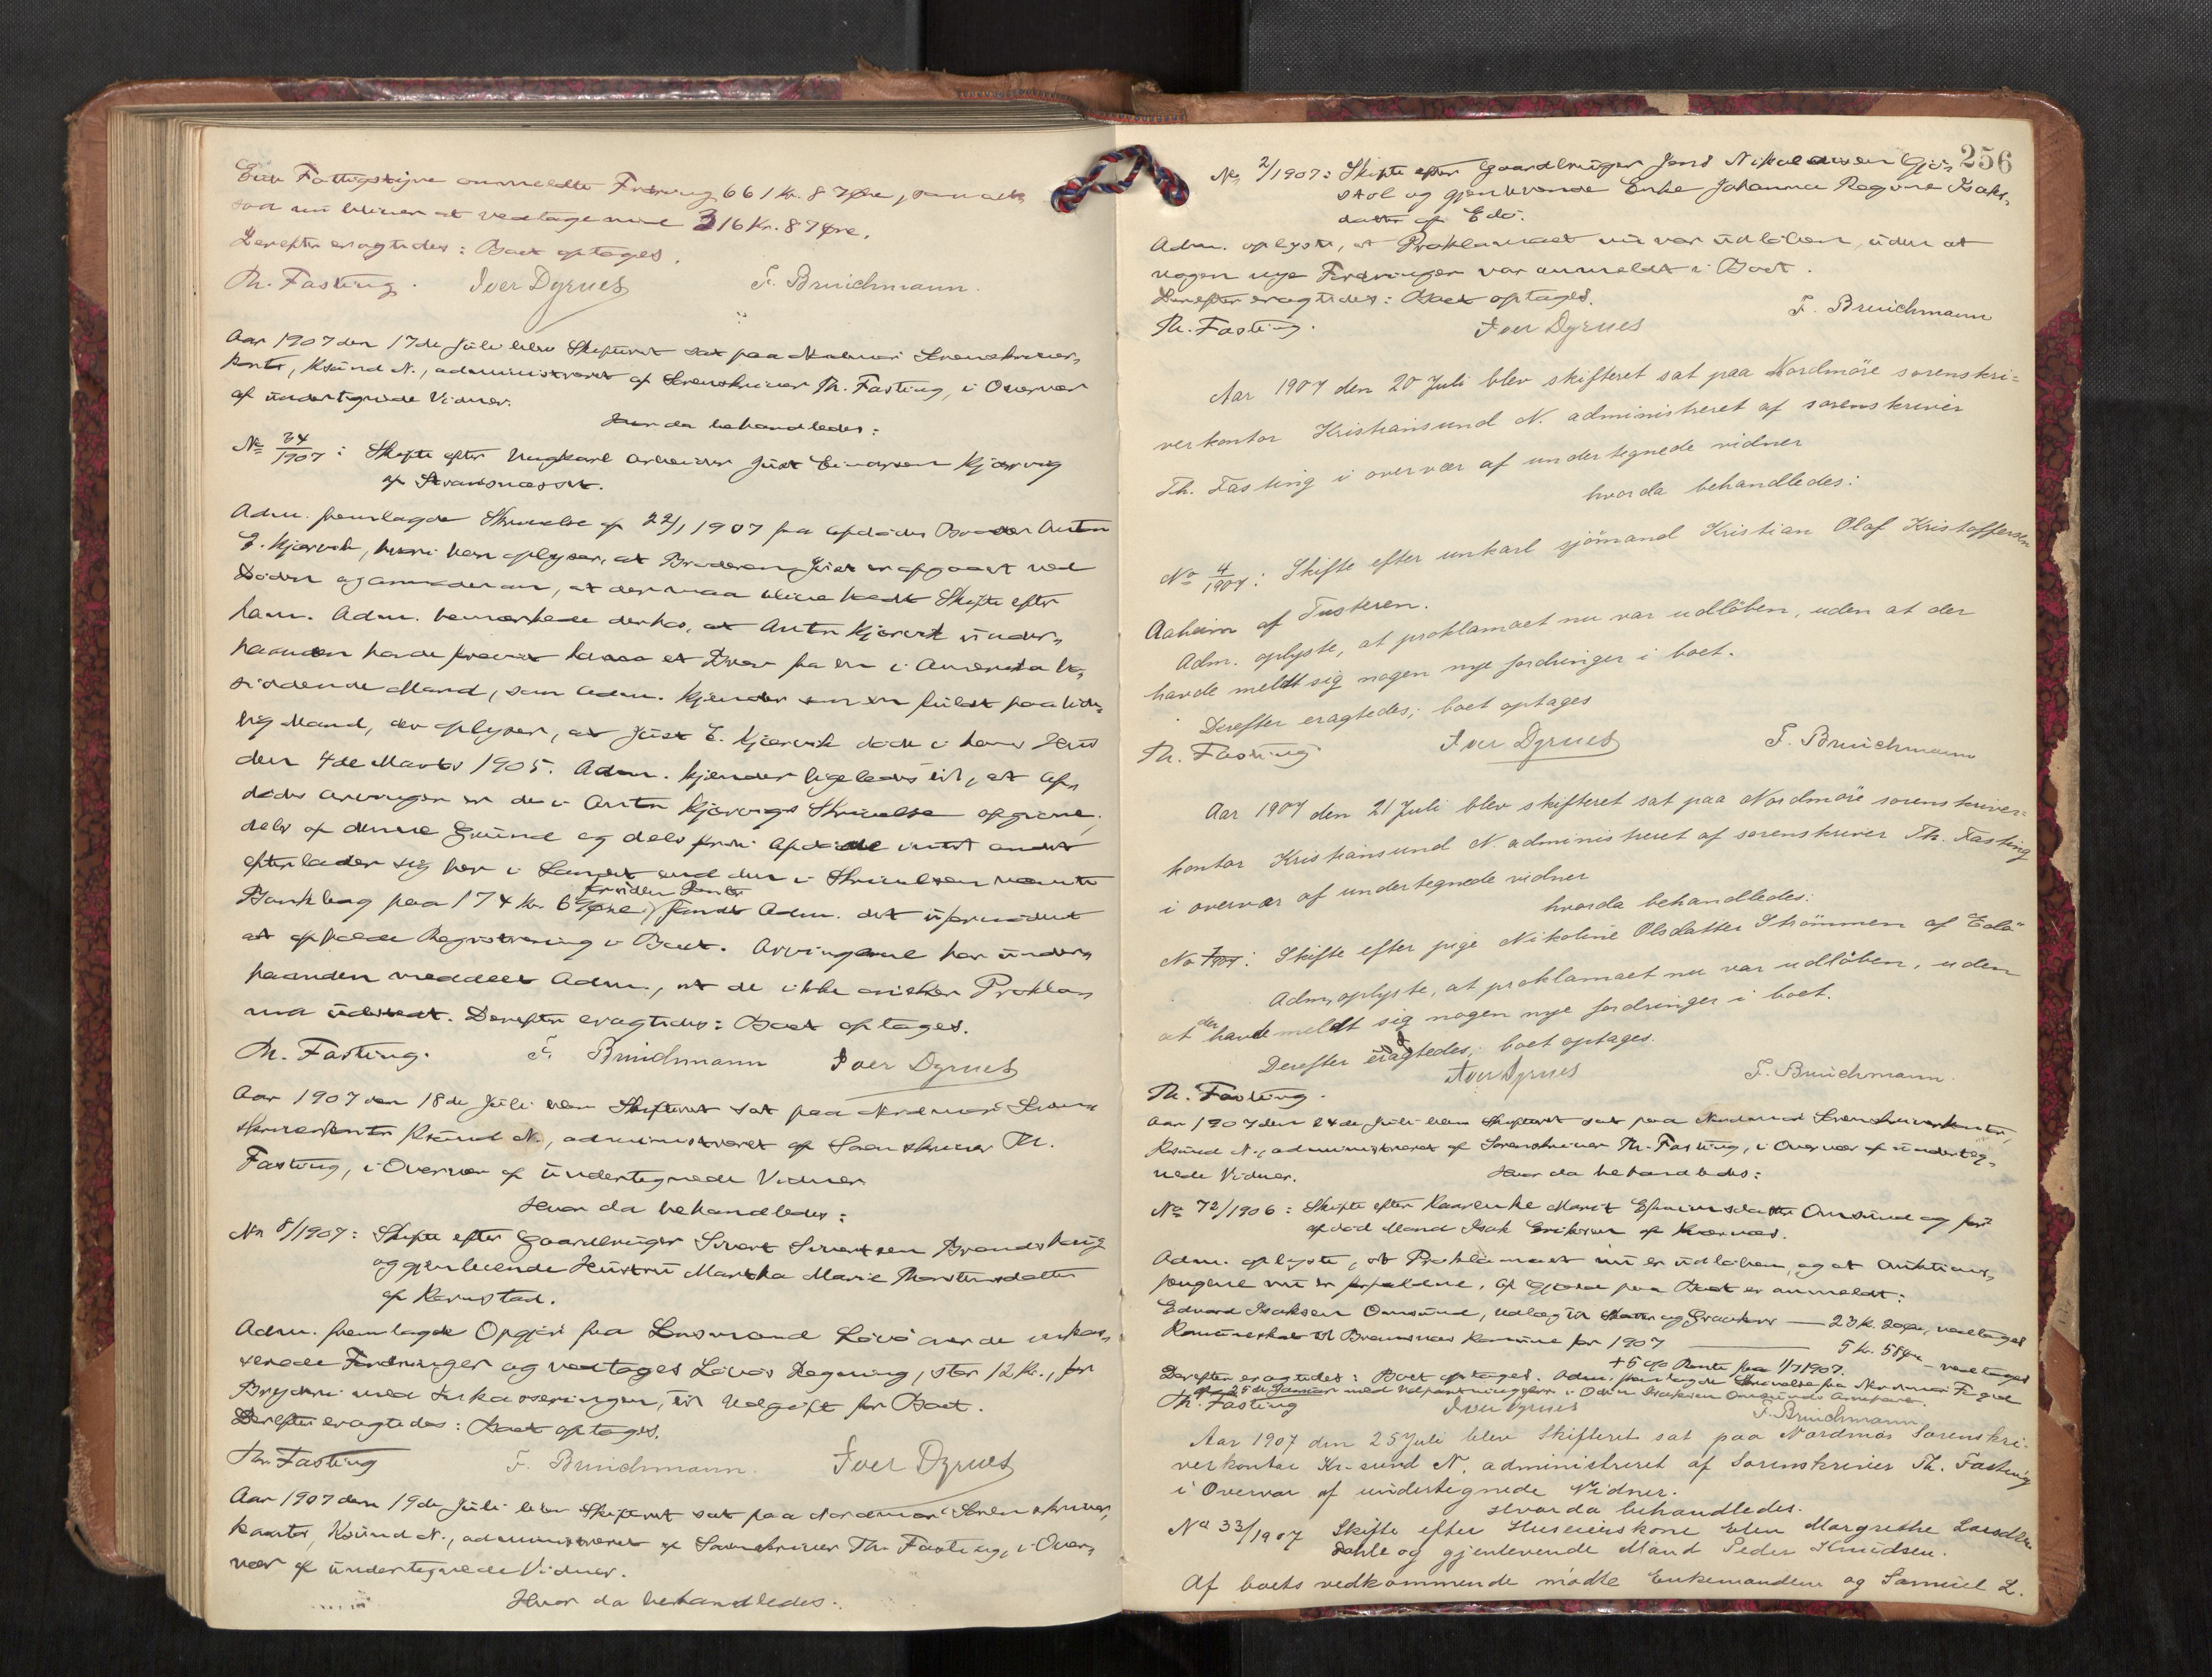 Edö Fattigstyre anmeldte Fordring 661 kr. 87 Øre, som altsaa
saa nu bliver at vedtage med 316 Kr. 87 Øre.
Derefter eragtedes: Boet optages.
Th. Fasting. Iver Dyrnes F. Bruichmann.
Aar 1907 den 17de Juli blev Skifteret sat paa Nordmøre Sorenskriver,
kontor, Ksund N., administreret af Sorenskriver Th. Fasting, i Overvær
af undertegnede Vidner.
Hvor da behandledes:
No 34/1907: Skifte efter Ungkarl Arbeider Just Einarsen Kjørvig
af Strandsnæsset.
Adm. fremlagde Skrivelse af 22/1 1907 fra afdødes Broder Anton
E. Kjørvik, hvori han oplyser, at Broderen Just er afgaaet ved
Døden og anmoder om, at der maa blive holdt Skifte efter
ham. Adm. bemærkede derhos, at Anton Kjørvik under,
haanden havde forevist ham et Brev fra en i Amerika bo,
siddende Mand, som Adm. kjender som en fuldt paalide,
lig Mand, der oplyser, at Just E. Kjørvik døde i hans Hus
den 4de Marts 1905. Adm. kjender ligeledes til, at af,
dødes Arvinger er de i Anton Kjørvigs Skrivelse opgivne,
dels af denne Grund og dels fordi Afdøde intet andet
efterlader sig her i Landet end den i Skrivelsen nævnte
Bankbog paa 174 kr. 6 Øre foruden Renter, fandt Adm. det ufornødent
at afholde Registrering i Boet. Arvingerne har under,
haanden meddelt Adm., at de ikke ønsker Prokla,
ma udstedt. Derefter eragtedes: Boet optages.
Th. Fasting. F. Bruichmann Iver Dyrnes
Aar 1907 den 18de Juli blev Skifteret sat paa Nordmøre Soren,
skriverkontor Ksund N., administreret af Sorenskriver Th.
Fasting, i Overvær af undertegnede Vidner
Hvor da behandledes:
No 8/1907: Skifte efter Gaardbruger Sivert Sivertsen Brandshaug
og gjenlevende Hustru Martha Marie Thorstensdatter
af Karnstad.
Adm. fremlagde Opgjør fra Lensmand Løvø over de inkas,
serede Fordringer og vedtages Løvøs Regning, stor 12 Kr., for
Bryderi med Inkasseringen, til Udgift for Boet.
Derefter eragtedes: Boet optages.
Th. Fasting F. Bruichmann. Iver Dyrnes
Aar 1907 den 19de Juli blev Skifteret sat paa Nordmøre Sorenskriver,
kontor, Ksund N., administreret af Sorenskriver Th. Fasting, i Over,
vær af undertegnede Vidner.
Hvor da behandledes:
256
No 2/1907: Skifte efter Gaardbruger Jens Nikolaisen Gjø,
støl og gjenlevende Enke Johanna Regine Isaks,
datter af Edö.
Adm. oplyste, at Proklamaet nu var udløben, uden at
nogen nye Fordringer var anmeldt i Boet.
Derefter eragtedes: Boet optages.
Th. Fasting. Iver Dyrnes F. Bruichmann
Aar 1907 den 20 Juli blev skifteret sat paa Nordmöre sorenskri=
verkontor Kristiansund N. administreret af sorenskriver
Th. Fasting i overvær af undertegnede vidner
hvorda behandledes:
No 4/1907: Skifte efter unkarl sjömand Kristian Olaf Kristoffersen
Aaheim af Tusteren.
Adm. oplyste, at proklamaet nu var udlöben, uden at der
havde meldt sig nogen nye fordringer i boet.
Derefter eragtedes; boet optages
Th. Fasting Iver Dyrnes F. Bruichmann
Aar 1907 den 21 Juli blev skifteret sat paa Nordmöre sorenskriver=
kontor Kristiansund N. administreret af sorenskriver Th. Fasting
i overvær af undertegnede vidner
hvorda behandledes:
No 7/1907: Skifte efter pige Nikoline Olsdatter Strömmen af Edö
Adm. oplyste, at proklamaet nu var udlöben, uden
at der havde meldt sig nogen nye fordringer i boet.
Derefter eragtedes; boet optages.
Th. Fasting. Iver Dyrnes F. Bruichmann.
Aar 1907 den 24de Juli blev Skifteret sat paa Nordmøre Sorenskriverkontor,
Ksund N., administreret af Sorenskriver Th. Fasting, i Overvær af underteg,
nede Vidner. Hvor da behandledes:
No 72/1906: Skifte efter Kaarenke Marit Efraimsdatter Omsund og før
afdød Mand Isak Eriksen af Kværnes.
Adm. oplyste, at Proklamaet nu er udløben, og at Auktions,
pengene nu er forfaldne. Af Gjæld paa Boet er anmeldt:
Edvard Isaksen Omsund, Udlæg til Skatter og Gravhus — 23 k. 20 Øre, vedtages
Komuneskat til Bremsnæs Komune for 1907 — 5 kr. 58 Øre – vedtages
+ 5 % Rente fra 1/7 1907.
Derefter eragtedes: Boet optages. Adm. fremlagde Skrivelse fra Nordmøre Fogderi
af 25de Januar med Udpantningsforr. i Odin Isaksen Omsunds Arvepart.
Th. Fasting Iver Dyrnes F. Bruichmann.
Aar 1907 den 25 Juli blev Skifteret sat paa Nordmøs Sorenskri-
verkontor Kr-sund N. administreret af Sorenskriver Th. Fasting
i Overvær af undertegnede Vidner.
Hvorda behandledes.
No 33/1907 Skifte efter Husmandskone Elen Margrethe Larsdtr.
Dahle og gjenlevende Mand Peder Knudsen.
Af boets vedkommende mødte Enkemanden og Samuel L.